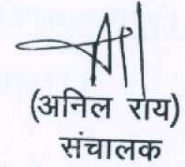 (अनिल राय)
संचालक